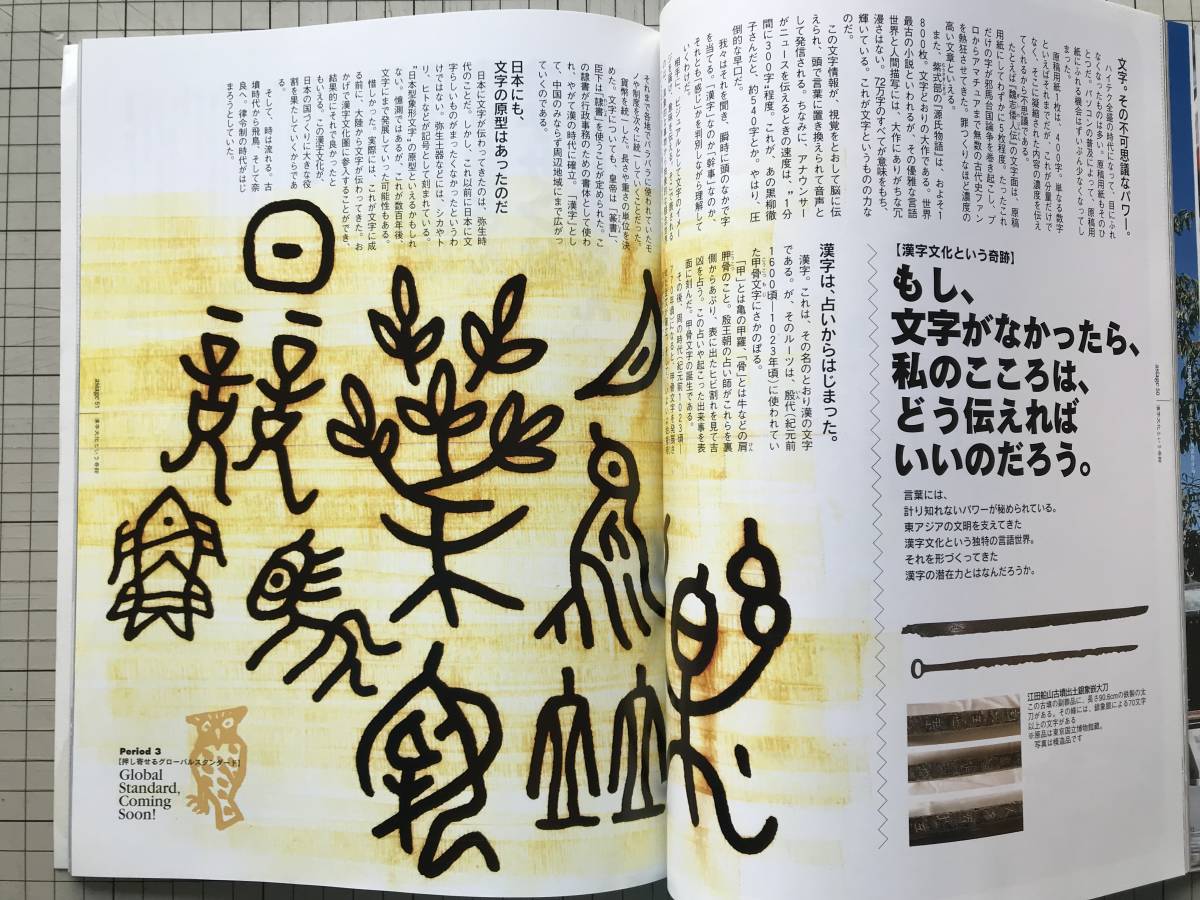 【漢字文化という奇跡】
もし、
文字がなかったら、
私のこころは、
どう伝えれば
いいのだろう。
言葉には、
計り知れないパワーが秘められている。
東アジアの文明を支えてきた
漢字文化という独特の言語世界。
それを形づくってきた
漢字の潜在力とはなんだろうか。
江田船山古墳出土銀象嵌大刀
この古墳の副葬品に、長さ90.6cmの鉄製の太
刀がある。その峰には、銀象嵌による70文字
以上の文字がある
※原品は東京国立博物館蔵。
写真は模造品です
文字。その不可思議なパワー。
ハイテク全盛の時代になって、目にふれ
なくなったものは多い。原稿用紙もそのひ
とつだ。パソコンの普及によって、原稿用
紙にふれる機会はずいぶん少なくなってし
まった。
原稿用紙1枚は、400字。単なる数字
といえばそれまでだが、これが分量だけで
なく、そこに凝縮された内容の濃度を伝え
てくれるから不思議である。
たとえば『魏志倭人伝』の文字面は、原稿
用紙にしてわずかに5枚程度。たったこれ
だけの字が邪馬台国論争を巻き起こし、プ
ロからアマチュアまで無数の古代史ファン
を熱狂させてきた。罪つくりなほど濃度の
高い文章といえる。
また、紫式部の『源氏物語』は、およそ1
800枚。文字どおりの大作である。世界
最古の小説といわれるが、その優雅な言語
世界と人間描写には、大作にありがちな冗
漫さはない。72万字のすべてが意味をもち、
輝いている。これが文字というものの力な
のだ。
この文字情報が、視覚をとおして脳に伝
えられ、頭で言葉に置き換えられて音声と
して発信される。ちなみに、アナウンサー
がニュースを伝えるときの速度は、"1分
間に300字"程度。これが、あの黒柳徹
子さんだと、約540字とか。やはり、圧
倒的な早口だ。
我々はそれを聞き、瞬時に頭のなかで字
を当てる。「漢字」なのか「幹事」なのか、
それとも「感じ」かを判別しながら理解して
いるわけだ。
漢字は、占いからはじまった。
漢字。これは、その名のとおり漢の文字
である。が、そのルーツは、殷代(紀元前
1600頃―1023年頃)に使われてい
た甲骨文字にさかのぼる。
「甲」とは亀の甲羅、「骨」とは牛などの肩
胛骨のこと。殷王朝の占い師がこれらを裏
側からあぶり、表に出たヒビ割れを見て吉
凶を占う。この占いや起こった出来事を表
面に刻んだ。甲骨文字の誕生である。
その後、周の時代(紀元前1023頃―
それまで各地でバラバラに使われていたモ
ノや制度を次々に統一していくことだった。
貨幣を統一した。長さや重さの単位を決
めた。文字についても、皇帝は「篆書」、
臣下は「隷書」を使うことが定められた。こ
の隷書が行政事務のための書体として使わ
れ、やがて漢の時代に確立。「漢字」とし
て、中国のみならず周辺地域にまで広がっ
ていくのである。
日本にも、
文字の原型はあったのだ
日本に文字が伝わってきたのは、弥生時
代のことだ。しかし、これ以前に日本に文
字らしいものがまったくなかったというわ
けではない。弥生土器などには、シカやト
リ、ヒトなどが記号として刻まれている。
"日本型象形文字"の原型といえるかもしれ
ない。憶測ではあるが、これが数百年後、
文字にまで発展していった可能性もある。
惜しかった。実際には、これが文字に成
る前に、大陸から文字が伝わってきた。お
かげで漢字文化圏に参入することができ、
結果的にそれで良かったと
もいえる。この漢字文化が、
日本の国づくりに大きな役
割を果たしていくからであ
る。
そして、時は流れる。古
墳時代から飛鳥、そして奈
良へ。律令制の時代がはじ
まろうとしていた。
Period 3
【押し寄せるグローバルスタンダード】
Global
Standard,
Coming
Soon!